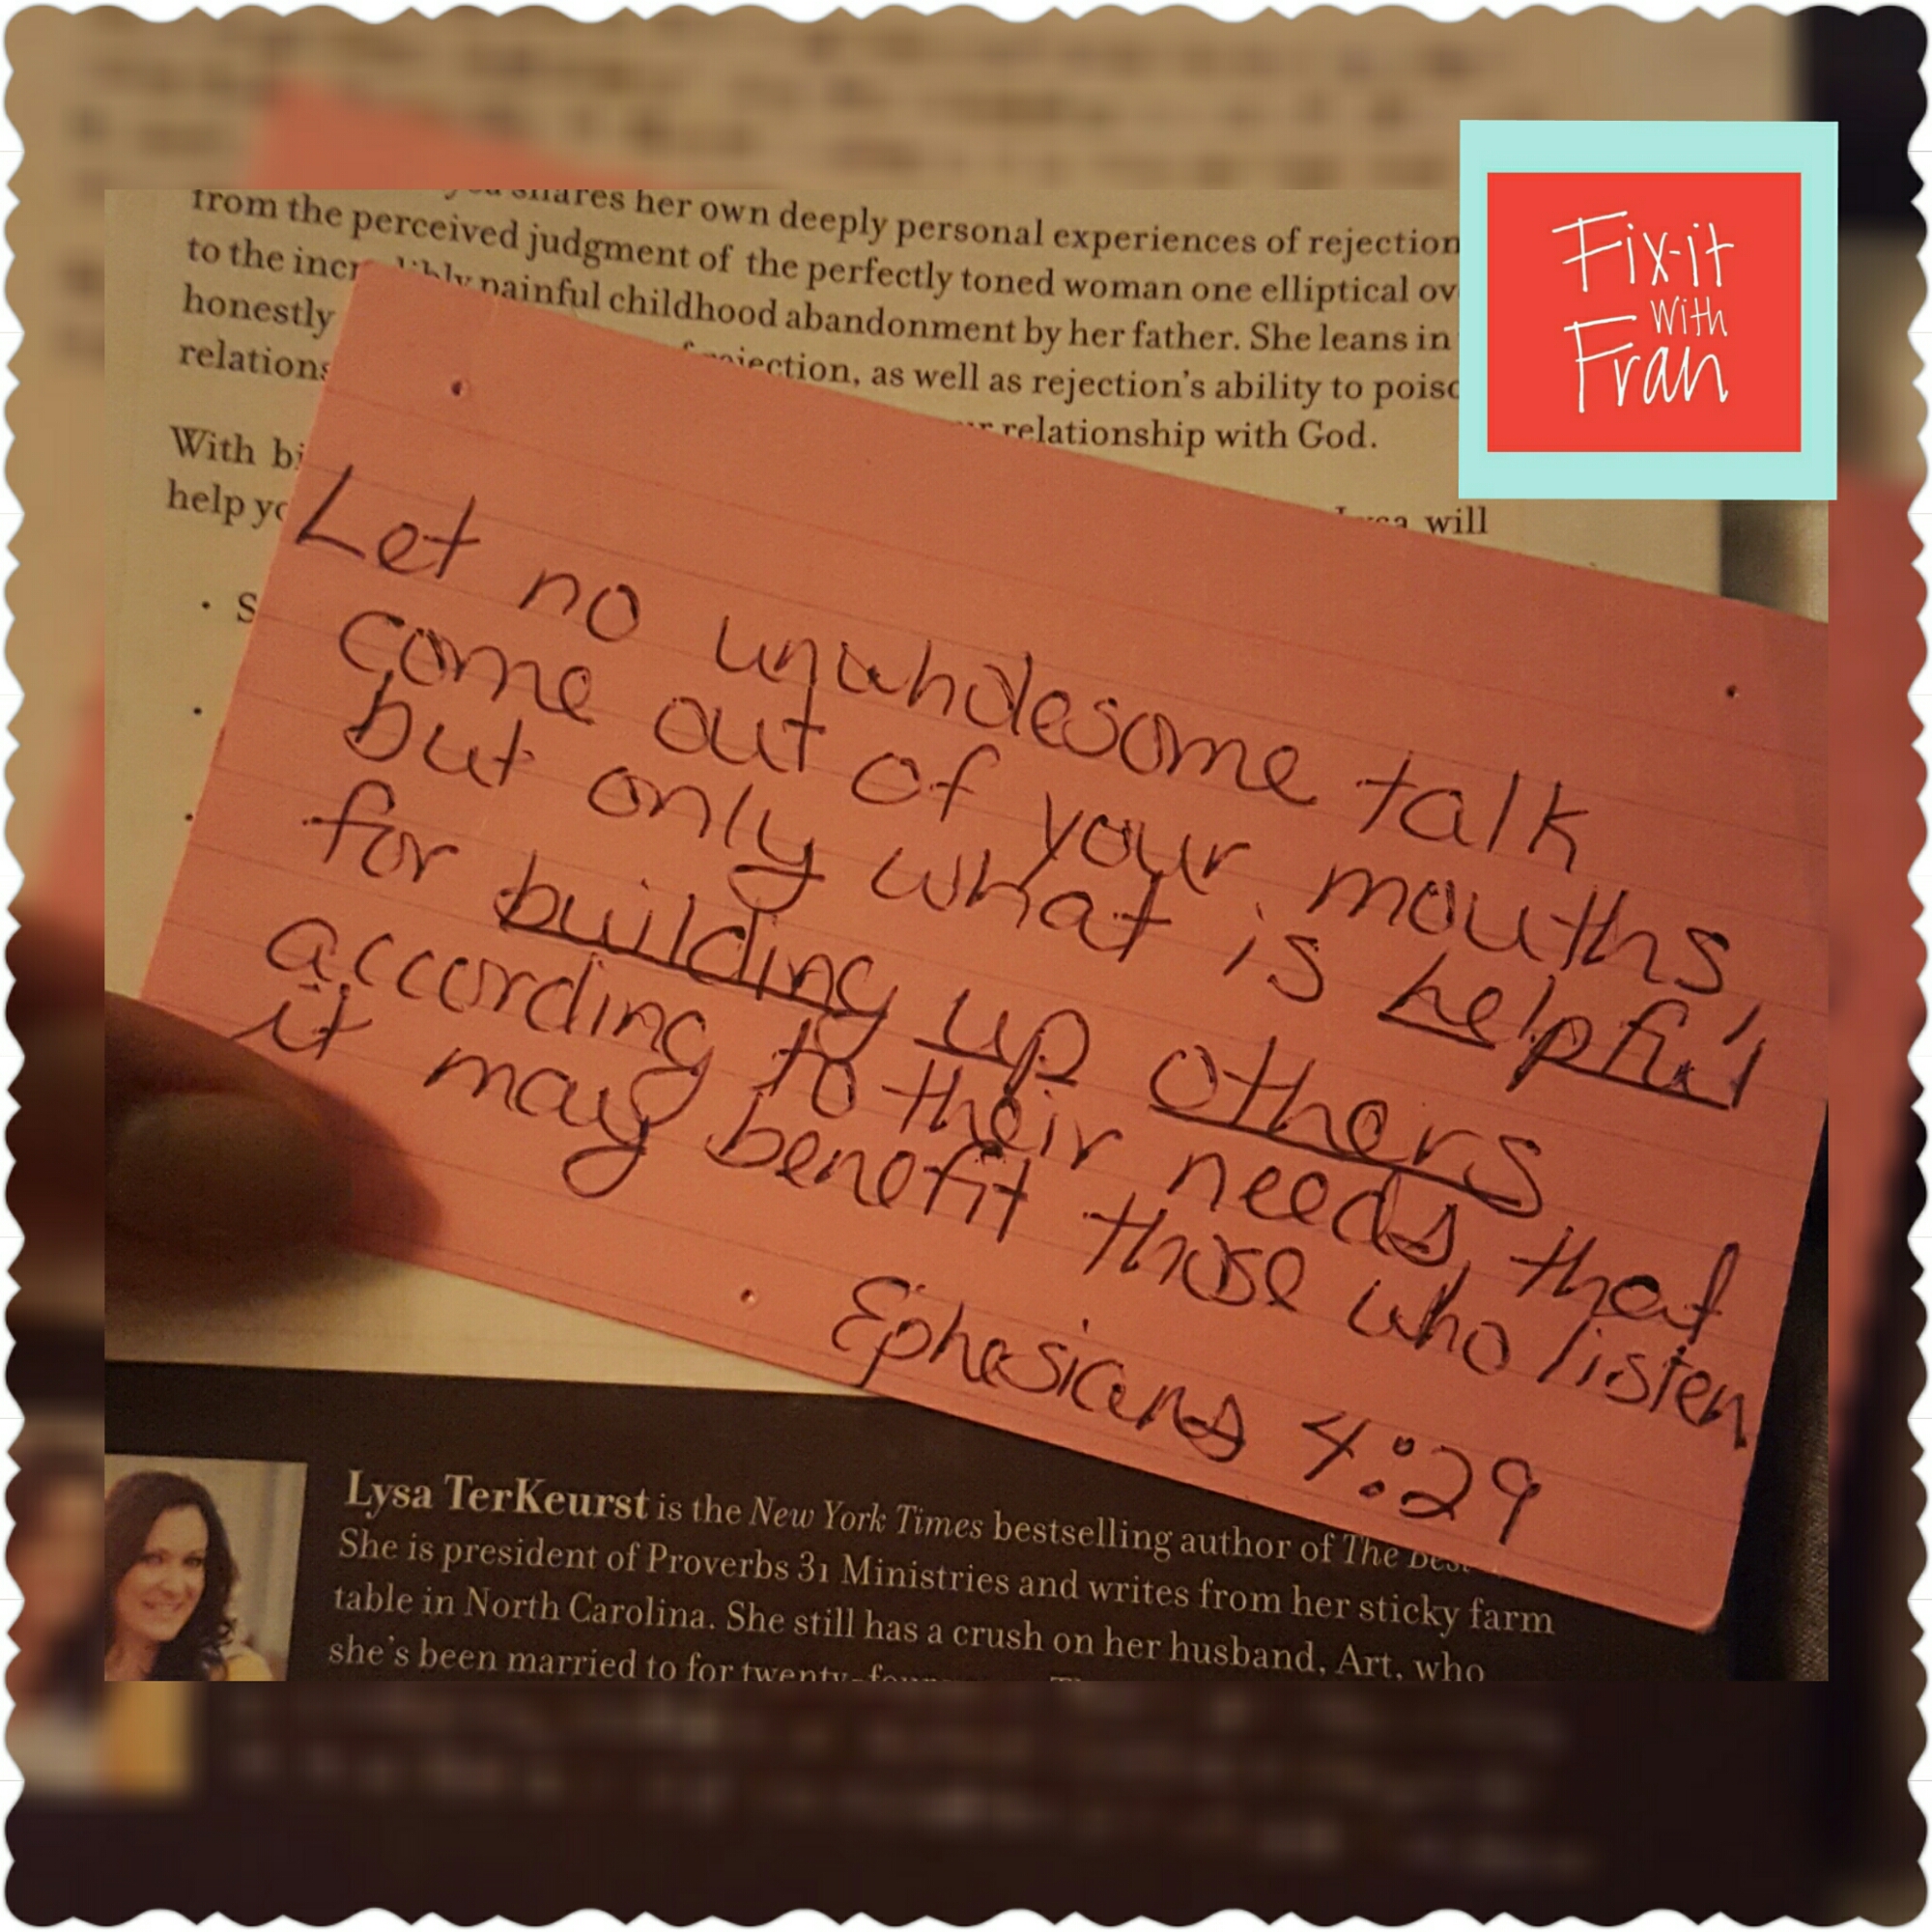 shares her own deeply personal experiences of rejection
from the perceived judgment of the perfectly toned woman one elliptical
to the painful childhood abandonment by her father. She leans in
honestly as well as rejection's ability to
relationship with God.
With
help will
Fix-it
with
Fran
Let no unwholesome talk
come out of your mouths
but only what is helpful
for building up others
according to their needs, that
it may benefit those who listen
Ephesians 4:29
Lysa TerKeurst is the New York Times bestselling author of The
She is president of Proverbs 31 Ministries and writes from her sticky farm
table in North Carolina. She still has a crush on her husband, Art, who
she's been married to for